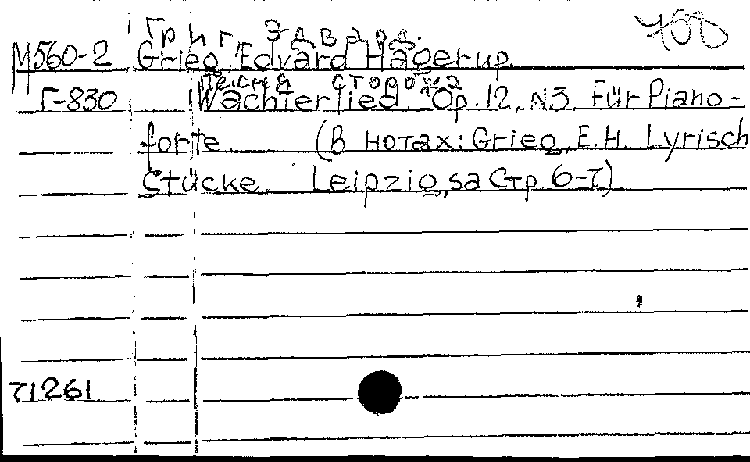 Григ Эдвард.
M560-2 Grieg, Edvard Hagerup.
Песня сторожа
Г-830 Wächterlied. Op. 12, N3. Für Piano-
forte. (В нотах: Grieg, E.H. Lyrisch
Stücke. Leipzig, sa Стр. 6-7)
71261